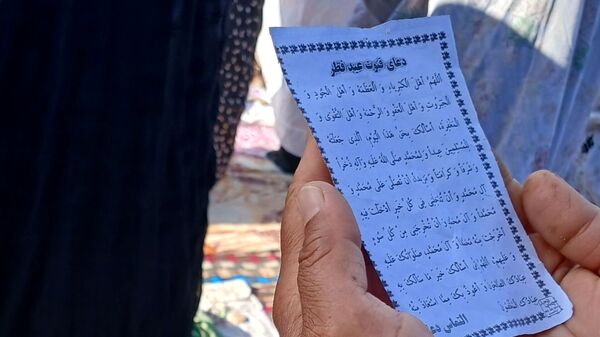 دعای قنوت عید فطر
اللهُمَّ اَهْلَ الْکِبْرِیاءِ وَ الْعَظَمَةِ وَ اَهْلَ الْجُودِ وَ
الْجَبَرُوتِ وَ اَهْلَ الْعَفْوِ وَ الرَّحْمَةِ وَ اَهْلَ التَّقْوی وَ
الْمَغْفِرَةِ، اَسْاَلُکَ بِحَقِّ هذَا الْیَوْمِ، الَّذی جَعَلْتَهُ
لِلْمُسْلِمینَ عیداً وَ لِمُحَمَّدٍ صَلَّی اللهُ عَلَیْهِ وَ آلِهِ ذُخْراً
وَ شَرَفاً وَ کَرامَتاً وَ مَزیداً اَنْ تُصَلِّیَ عَلی مُحَمَّدٍ وَ
آلِ مُحَمَّدٍ وَ اَنْ تُدْخِلَنی فی کُلِّ خَیْرٍ اَدْخَلْتَ فِیهِ
مُحَمَّداً وَ آلَ مُحَمَّدٍ وَ اَنْ تُخْرِجَنی مِنْ کُلِّ سُوءٍ
اَخْرَجْتَ مِنْهُ مُحَمَّداً وَ آلَ مُحَمَّدٍ، صَلَواتُکَ عَلَیْهِ
وَ عَلَیْهِمْ، اَللّهُمَّ اِنّی اَسْاَلُکَ خَیْرَ ما سَاَلَکَ بِهِ
عِبادُکَ الصّالِحُونَ، وَ اَعُوذُ بِکَ مِمَّا اسْتَعاذَ مِنْهُ
عِبادُکَ
التماس دعا